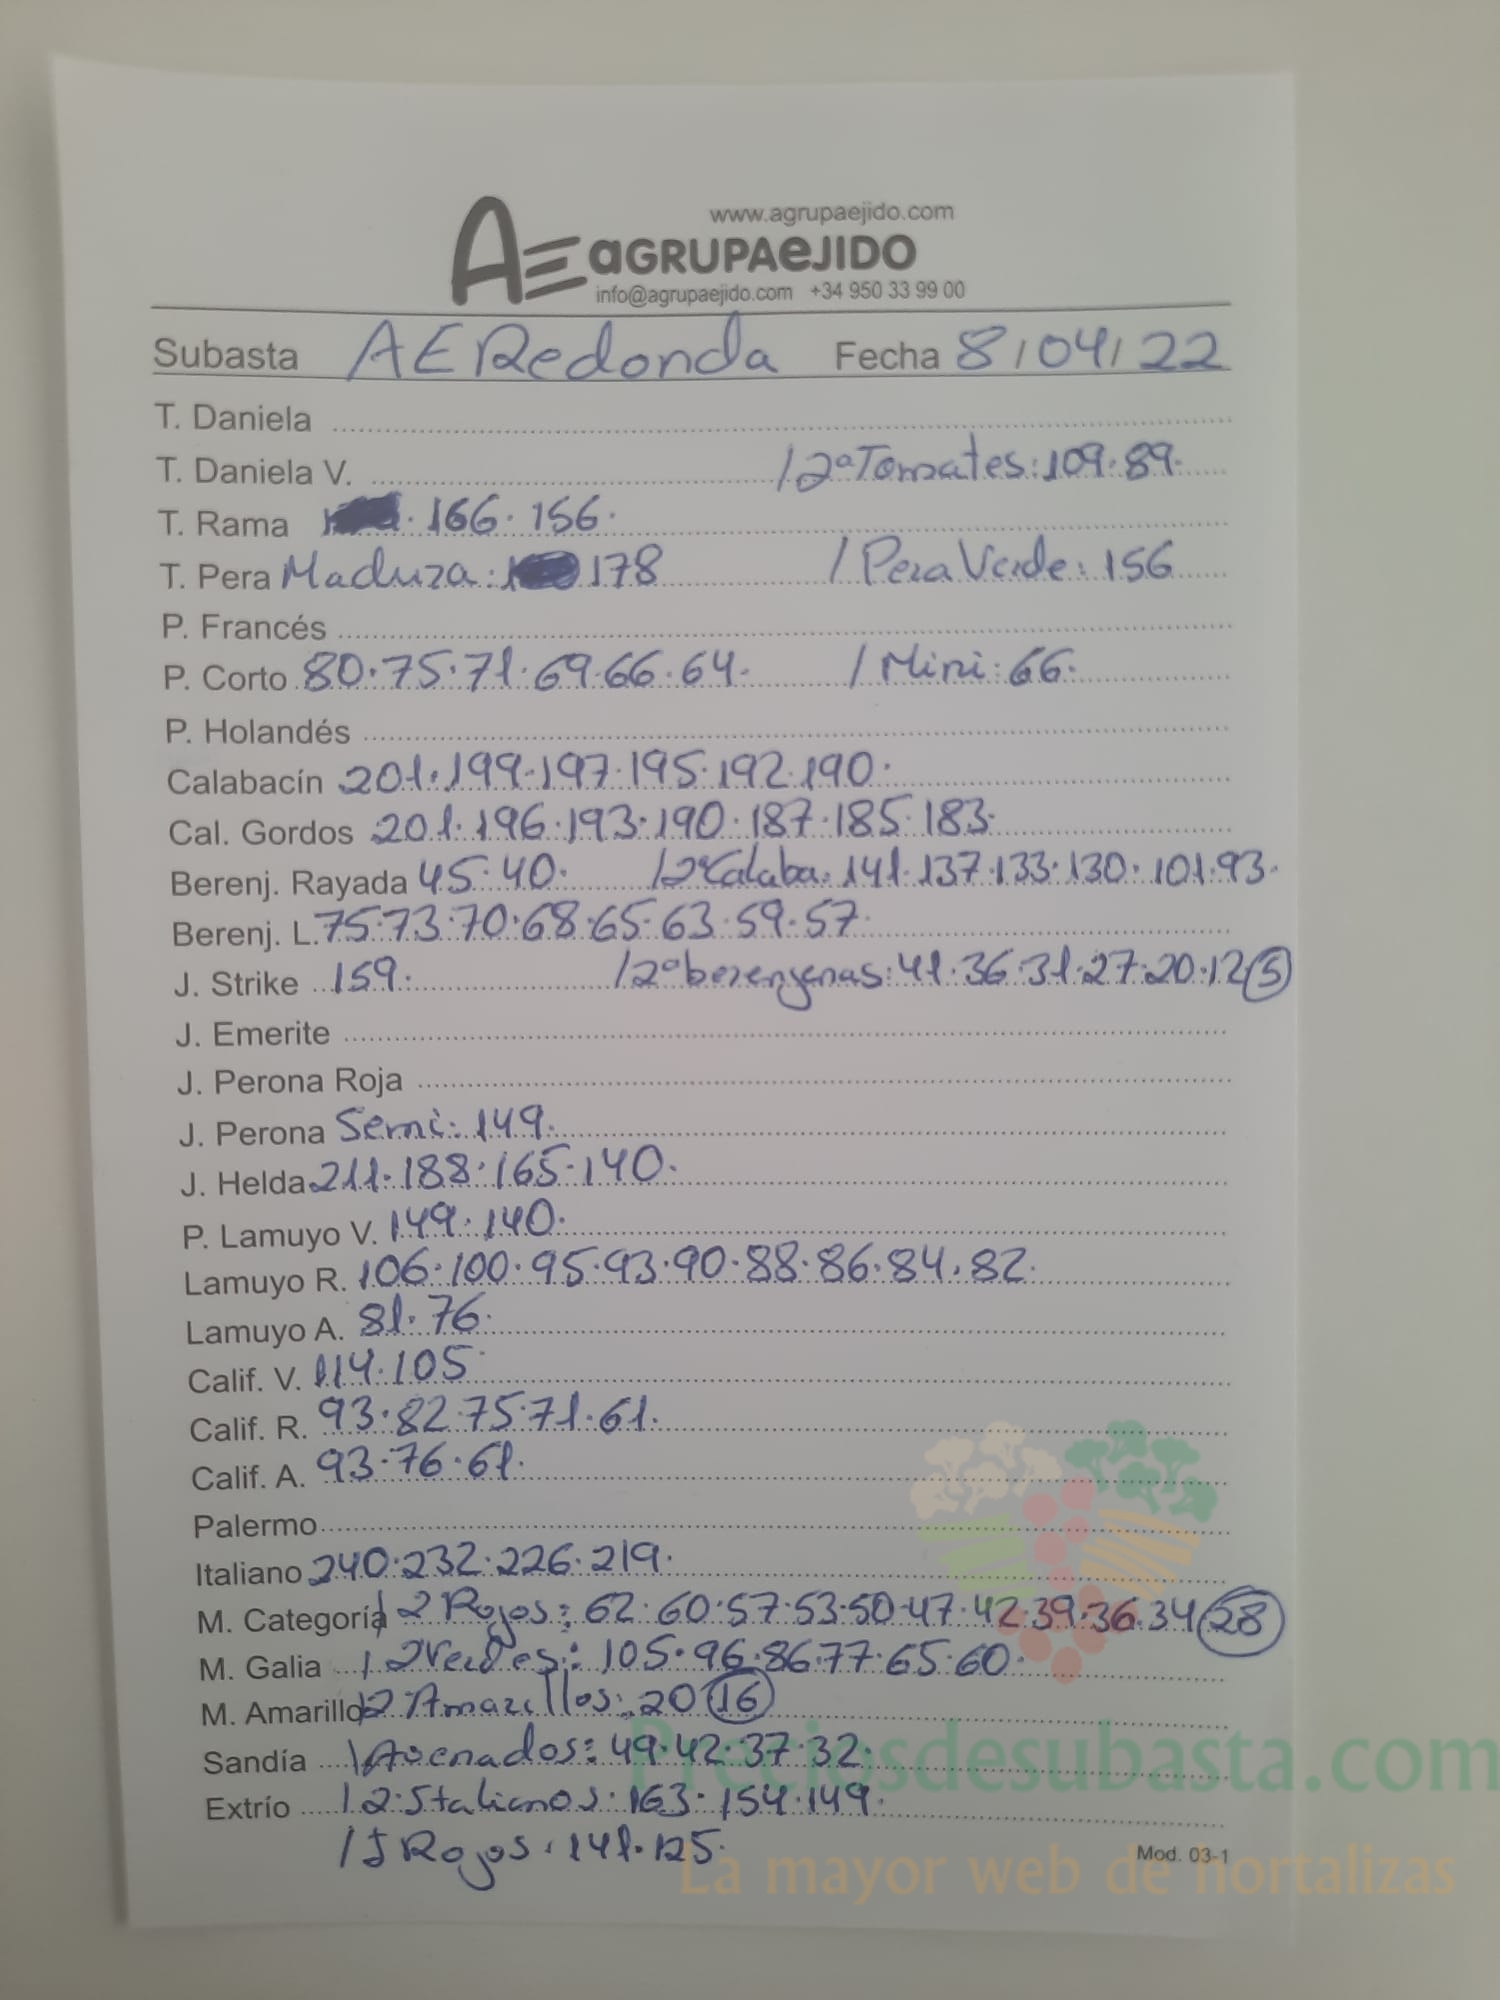 www.agrupaejido.com
AE aGRUPAeJIDO
info@agrupaejido.com +34 950 33 99 00
Subasta AERedonda Fecha 8/04/22
T. Daniela
T. Daniela V. /2ª Tomates: 109. 89.
T. Rama . 166. 156.
T. Pera Madura: 178 / Pera Verde: 156
P. Francés
P. Corto 80. 75. 71. 69. 66. 64. / Mini: 66.
P. Holandés
Calabacín 201. 199. 197. 195. 192. 190.
Cal. Gordos 201. 196. 193. 190. 187. 185. 183.
Berenj. Rayada 45. 40. /2ª Calaba. 141. 137. 133. 130. 101. 93.
Berenj. L. 75. 73. 70. 68. 65. 63. 59. 57.
J. Strike 159. /2ª berenjenas: 41. 36. 31. 27. 20. 12 5
J. Emerite
J. Perona Roja
J. Perona Semi: 149.
J. Helda 211. 188. 165. 140.
P. Lamuyo V. 149. 140.
Lamuyo R. 106. 100. 95. 93. 90. 88. 86. 84. 82.
Lamuyo A. 81. 76.
Calif. V. 114. 105
Calif. R. 93. 82. 75. 71. 61.
Calif. A. 93. 76. 61.
Palermo
Italiano 240. 232. 226. 219.
M. Categoría / 2 Rojos: 62. 60. 57. 53. 50. 47. 42. 39. 36. 34 28
M. Galia / 2 Verdes: 105. 96. 86. 77. 65. 60.
M. Amarillo / 2 Amarillos: 20 16
Sandía / Asenados: 49. 42. 37. 32.
Extrío / 2. Italianos: 163. 154. 149.
/ I Rojos: 141. 125.
Mod. 03-1
Preciosdesubasta.com
La mayor web de hortalizas